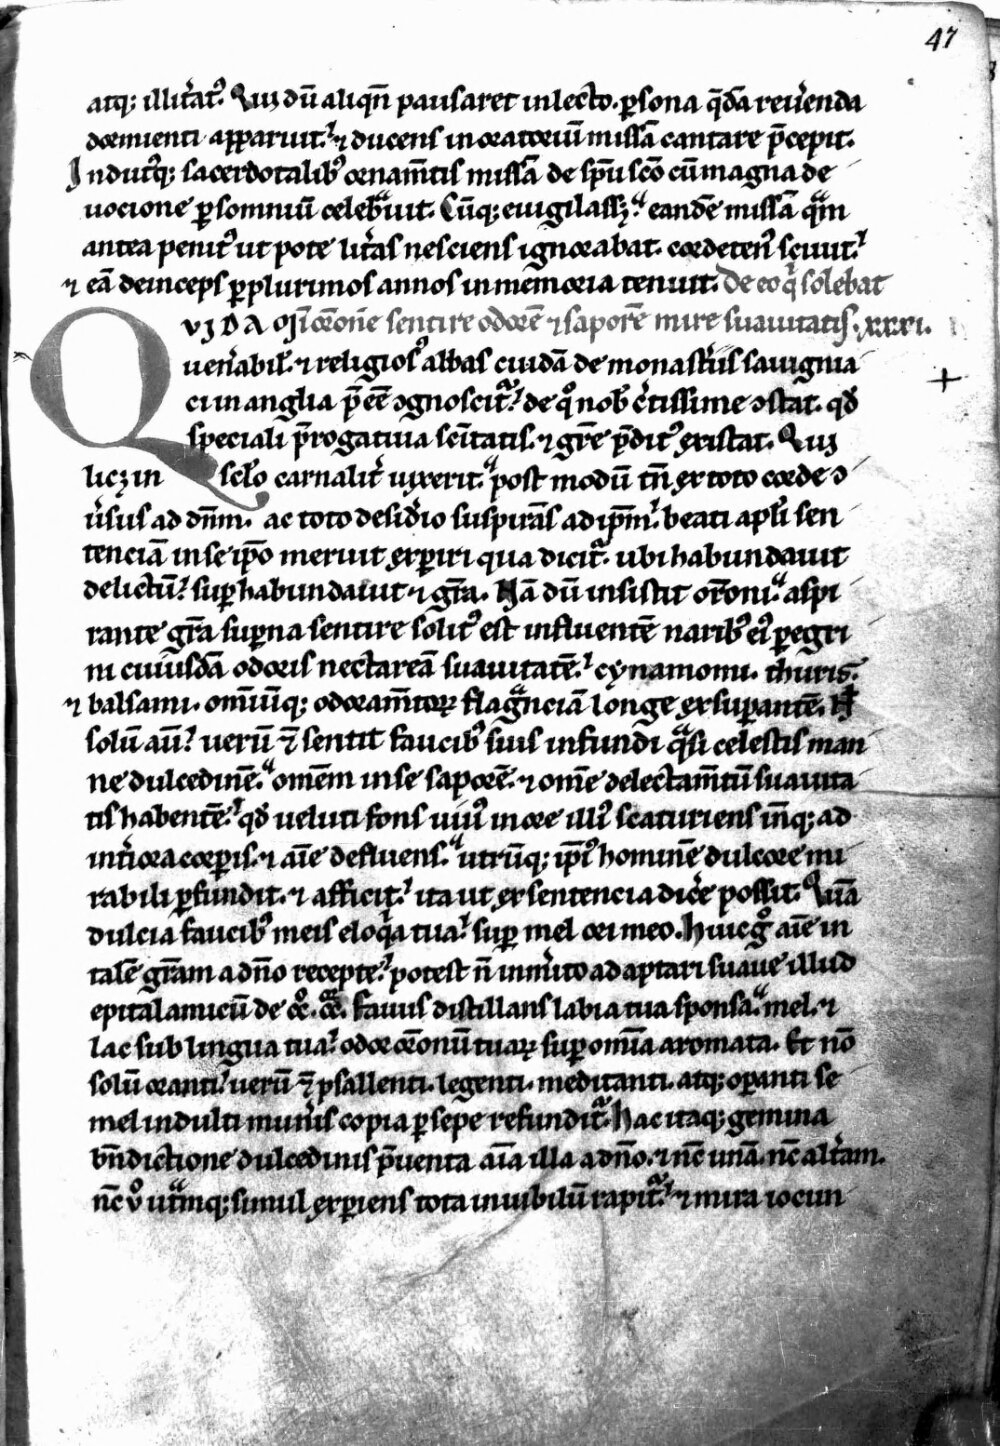 47
atq; illit̾at᷒. Qui dū aliqn̄ pausaret in lecto. ꝑsona q̄dā reu̾enda
dormienti apparuit. ⁊ ducens in oratoriū missā cantare p̄cepit.
Indut᷒q; sacerdotalib᷒ ornam̄tis missā de sp̄u sc̄o cū magna de
uocione ꝑ somniū celebͣuit. Cūq; euigilassꝫ. eandē missā qͣm
antea penit᷒ ut pote lit̾as nesciens ignorabat. cordeten᷒ sciuit.
⁊ eā deinceps ꝑ plurimos annos in memoria tenuit. De eo qͥ solebat
QVIDAM in or̄one sentire odorē ⁊ saporē mire suauitatis. xxxi.
uen̾abil̾. ⁊ religios᷒ abbas cuidā de monast̾iis sauignia
ci in anglia p̄eē ↄgnoscit̾. de qͦ nob̾ c̾tissime ↄstat. qđ
speciali p̄rogatiua sc̄itatis. ⁊ gr̄e p̄dit᷒ existat. Qui
licꝫ in sc̄lo carnalit̾ uixerit. post modū tn̄ ex toto corde ↄ
u̾sus ad dn̄m. ac toto desid̾io suspirās ad ip̄m. beati apl̾i sen
tenciā in se ip̄o meruit exꝑiri qua dicit̾. ubi habundauit
delictū. suꝑhabundauit ⁊ gr̄a. Nā dū insistit or̄oni. aspi
rante gr̄a suꝑna sentire solit᷒ est influentē narib᷒ ei᷒ ꝑegri
ni cuiusdā odoris nectareā suauitatē. cynamomi. thuris.
⁊ balsami. omīuq; odoram̄torꝝ flagͣnciā longe exsuꝑantē. N̄
solū aū. uerū ⁊ sentit faucib᷒ suis infundi qͣsi celestis man
ne dulcedinē. omēm in se saporē. ⁊ om̄e delectam̄tū suauita
tis habentē. qđ ueluti fons uiu᷒ in ore illi᷒ scaturiens in̄q; ad
int̾iora corꝑis. ⁊ aīe defluens. utrūq; ip̄i᷒ hominē dulcore mi
rabili ꝑfundit. ⁊ afficit. ita ut ex sentencia dic̾e possit. Quā
dulcia faucib᷒ meis eloqͥa tua. suꝑ mel ori meo. Huic gͦ aīe in
talē gr̄am a dn̄o recepte. potest n̄ inm̾ito adaptari suaue illud
epitalamicū de cͣ. cͣ. Fauus distillans labia tua sponsa. mel. ⁊
lac sub lingua tua. odor or̄onū tuaꝝ suꝑ om̄ia aromata. Et nō
solū oranti. uerū ⁊ psallenti. legenti. meditanti. atq; oꝑanti se
mel indulti mun̾is copia ꝑsepe refundit̾. Hac itaq; gemina
bn̄dictione dulcedinis p̄uenta aīa illa a dn̄o. ⁊ nc̄ unā. nc̄ alt̾am.
nc̄ uͦ utͣmq; simul exꝑiens tota in iubilū rapit̾. ⁊ mira iocun